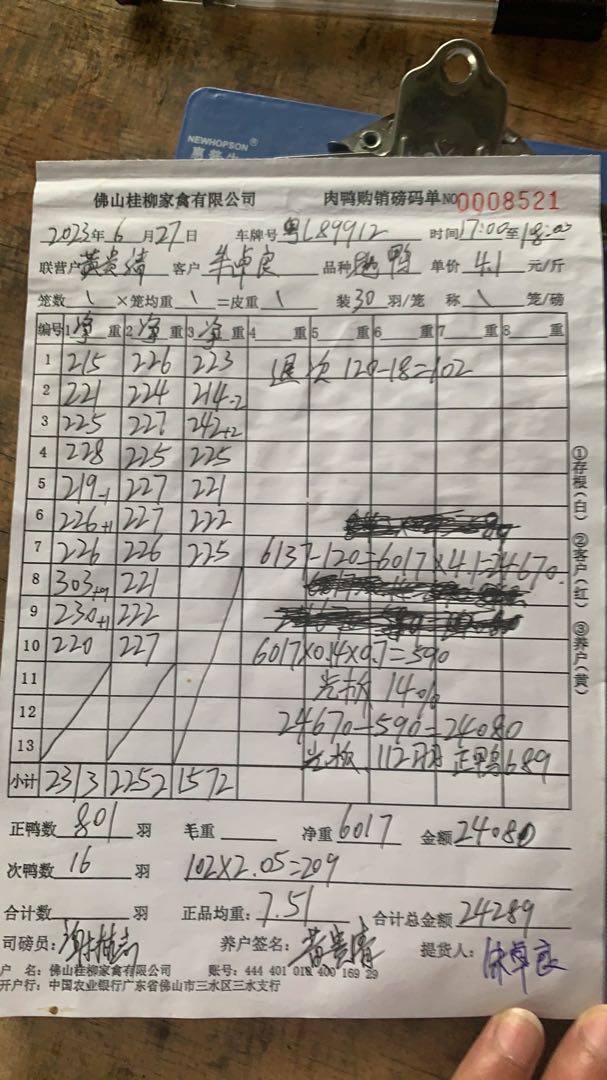 NEWHOPSON®
佛山桂柳家禽有限公司 肉鸭购销磅码单 NO 0008521
2023年6月27日 车牌号 粤L89912 时间17:00至18:00
联营户 黄贵清 客户 卓良 品种 鸭 单价 4.1 元/斤
笼数 \ ×笼均重 \ =皮重 \ 装30羽/笼 称 \ 笼/磅
编号 1净重 2净重 3净重 4 重 5 重 6 重 7 重 8 重
1 215 226 223 退次 120-18=102
2 221 224 214-2
3 225 227 242+2
4 228 225 225
5 219-1 227 221
6 226+1 227 222
7 226 226 225 6137-120=6017×4.1=24670.
8 303+9 221
9 230+1 222
10 220 227 6017×0.14×0.7=590
11 光板 14%
12 24670-590=24080
13 光板 112羽 正鸭689
小计 2313 2252 1572
正鸭数 801 羽 毛重 净重 6017 金额 24080
次鸭数 16 羽 102×2.05=209
合计数 羽 正品均重: 7.51 合计总金额 24289
司磅员: 养户签名: 黄贵清 提货人: 卓良
户 名: 佛山桂柳家禽有限公司 账号: 444 401 018 400 169 29
开户行: 中国农业银行广东省佛山市三水区三水支行
①存根(白) ②客户(红) ③养户(黄)